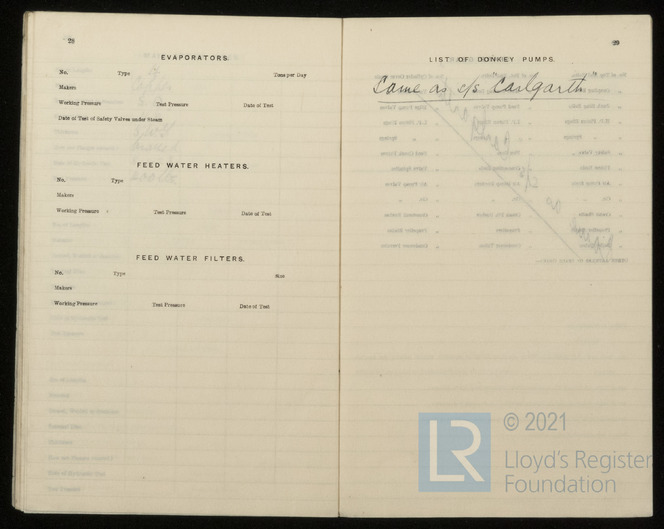 28
EVAPORATORS.
No. Type Tons per Day
Makers
Working Pressure Test Pressure Date of Test
Date of Test of Safety Valves under Steam
FEED WATER HEATERS.
No. Type
Makers
Working Pressure Test Pressure Date of Test
FEED WATER FILTERS.
No. Type Size
Makers
Working Pressure Test Pressure Date of Test
29
LIST OF DONKEY PUMPS.
Same as s/s "Carlgarth"
LR
© 2021
Lloyd's Register
Foundation